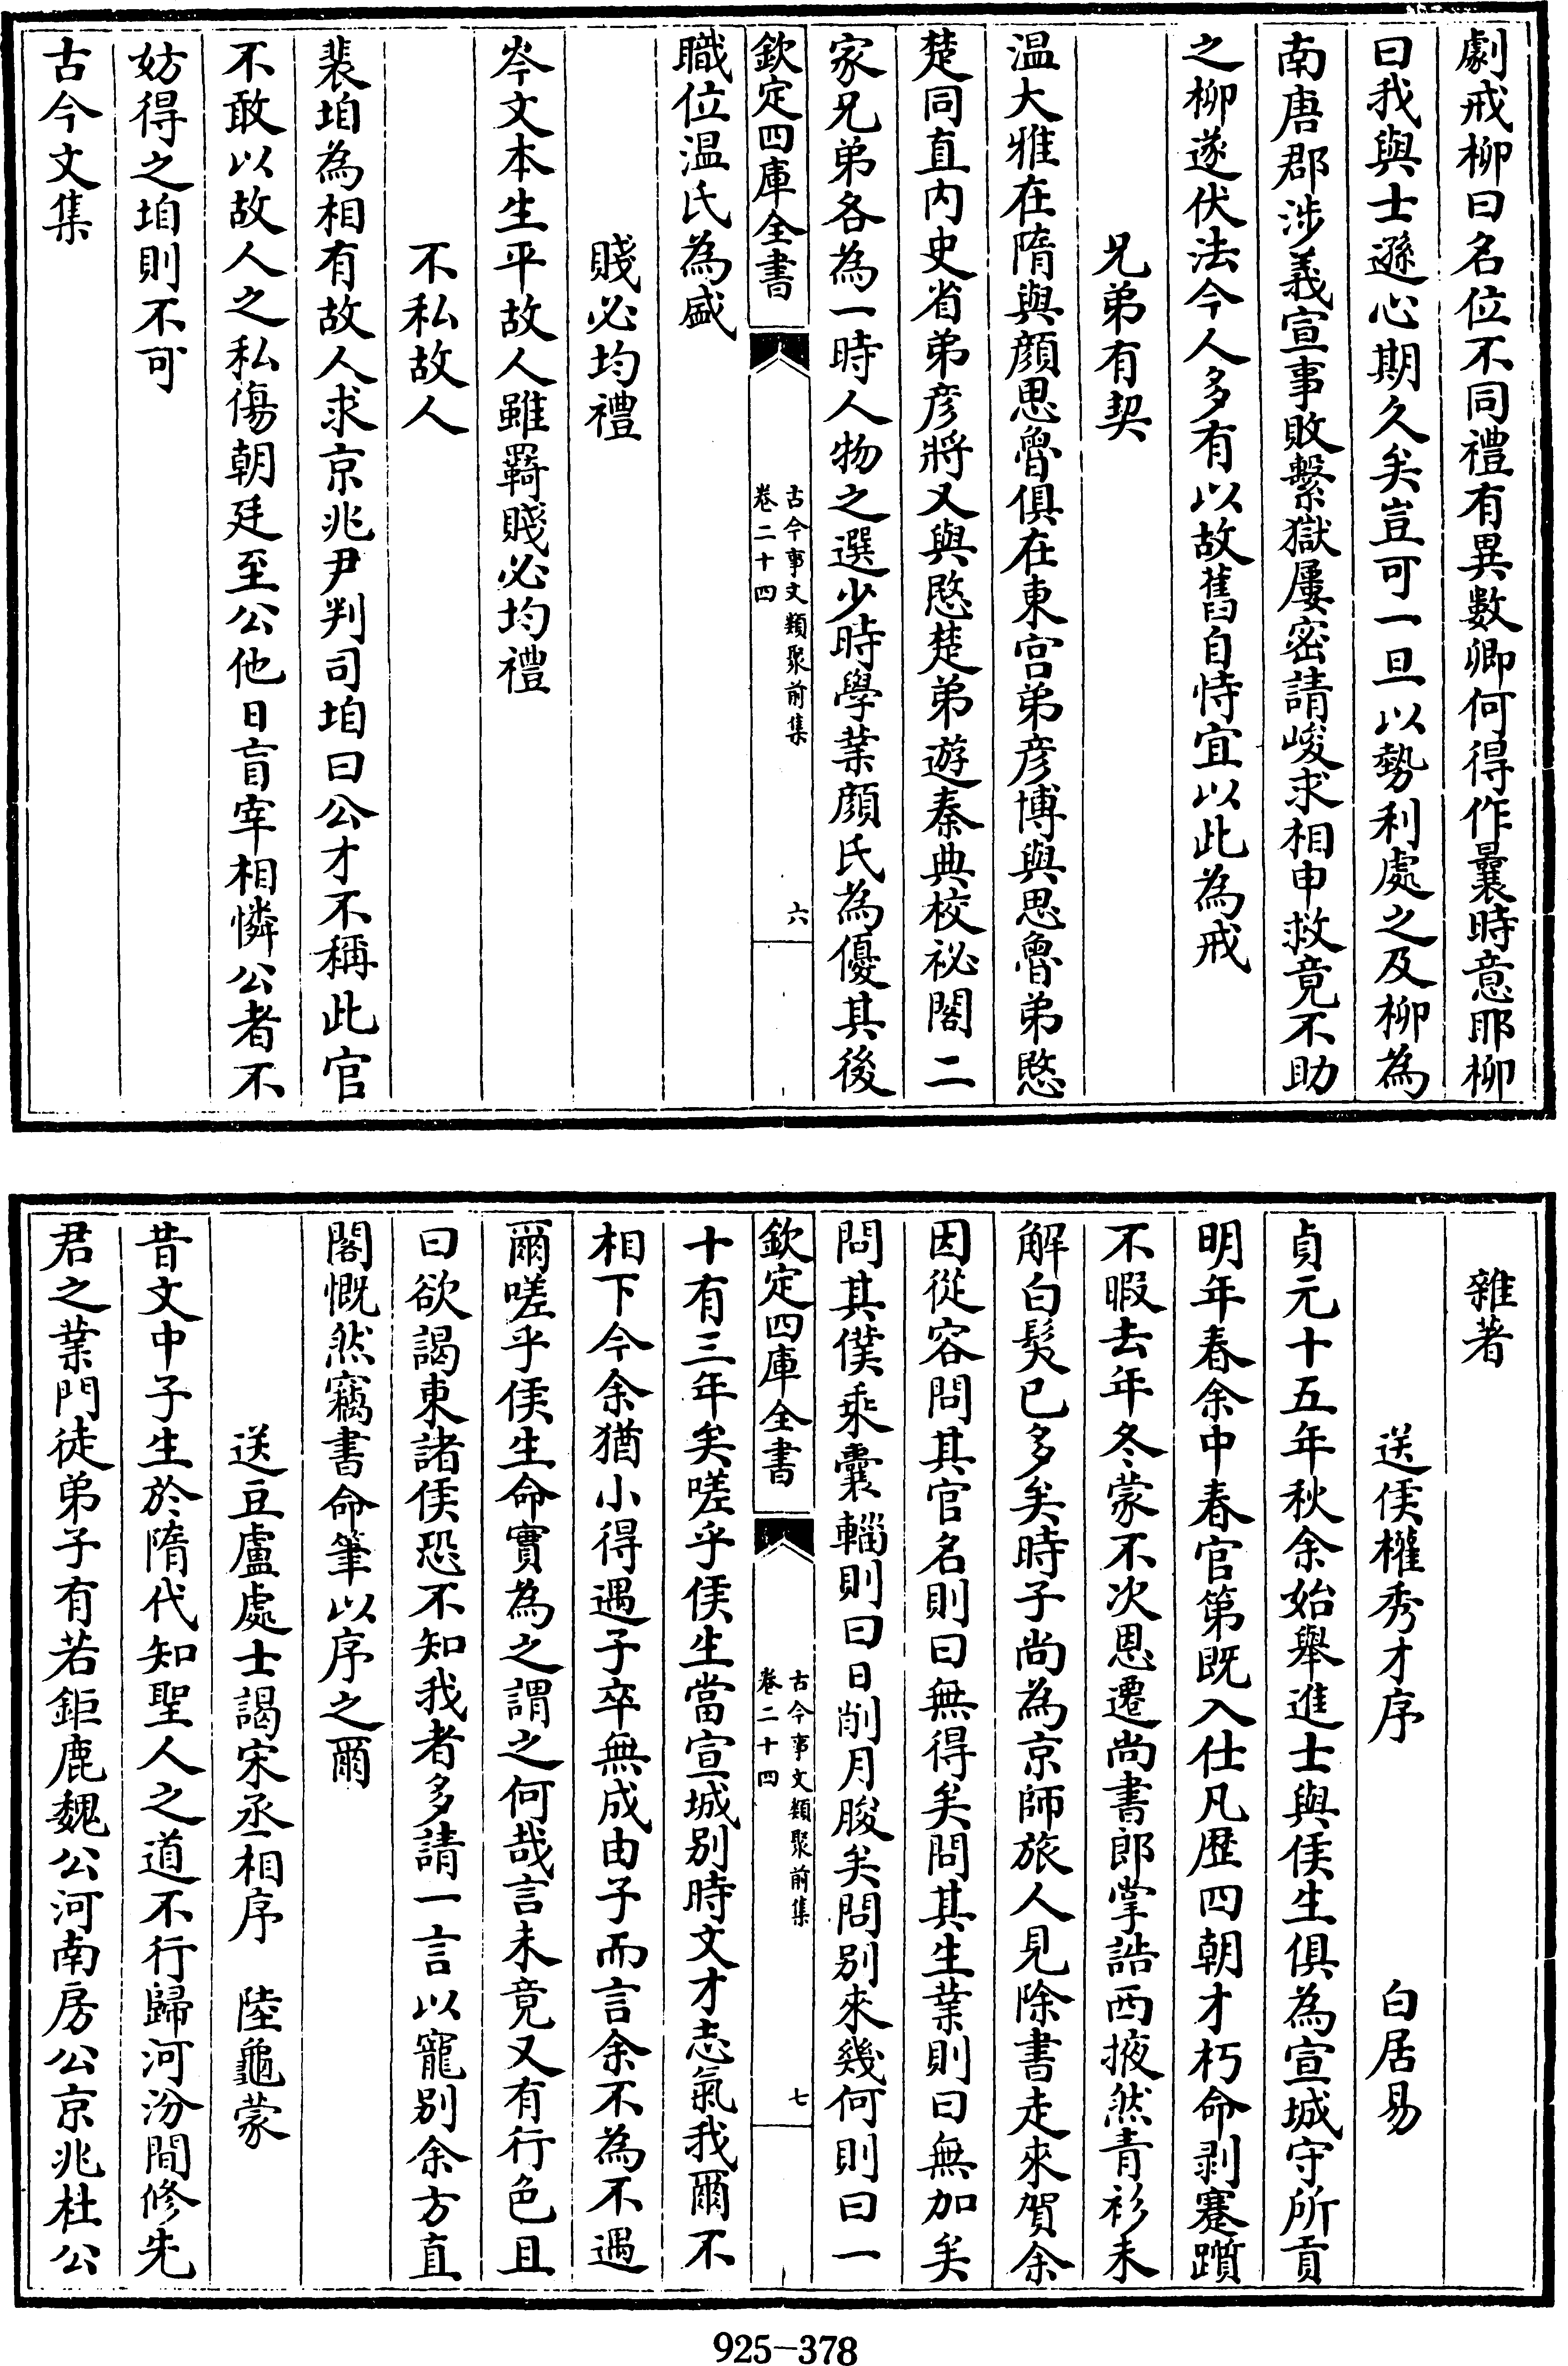 劇戒柳曰名位不同禮有異數卿何得作曩時意耶柳
曰我與士遜心期久矣豈可一旦以勢利處之及柳為
南唐郡涉義宣事敗繫獄屢密請峻求相申救竟不助
之柳遂伏法今人多有以故舊自恃宜以此為戒
兄弟有契
温大雅在隋與顔思魯俱在東宫弟彦博與思魯弟愍
楚同直内史省弟彦將又與愍楚弟遊秦典校祕閣二
家兄弟各為一時人物之選少時學業顔氏為優其後
欽定四庫全書
古今事文類聚前集
卷二十四
六
職位温氏為盛
賤必均禮
岑文本生平故人雖羇賤必均禮
不私故人
裴垍為相有故人求京兆尹判司垍曰公才不稱此官
不敢以故人之私傷朝廷至公他日盲宰相憐公者不
妨得之垍則不可
古今文集
雜著
送侯權秀才序 白居易
貞元十五年秋余始舉進士與侯生俱為宣城守所貢
明年春余中春官第既入仕凡歷四朝才朽命剥蹇躓
不暇去年冬蒙不次恩遷尚書郎掌誥西掖然青衫未
解白髮已多矣時子尚為京師旅人見除書走來賀余
因從容問其官名則曰無得矣問其生業則曰無加矣
問其僕乘囊輜則曰日削月朘矣問别來幾何則曰一
欽定四庫全書
古今事文類聚前集
卷二十四
七
十有三年矣嗟乎侯生當宣城别時文才志氣我爾不
相下今余猶小得遇子卒無成由子而言余不為不遇
爾嗟乎侯生命實為之謂之何哉言未竟又有行色且
曰欲謁東諸侯恐不知我者多請一言以寵别余方直
閣慨然竊書命筆以序之爾
送豆盧處士謁宋丞相序 陸龜蒙
昔文中子生於隋代知聖人之道不行歸河汾間修先
君之業門徒弟子有若鉅鹿魏公河南房公京兆杜公
925-378